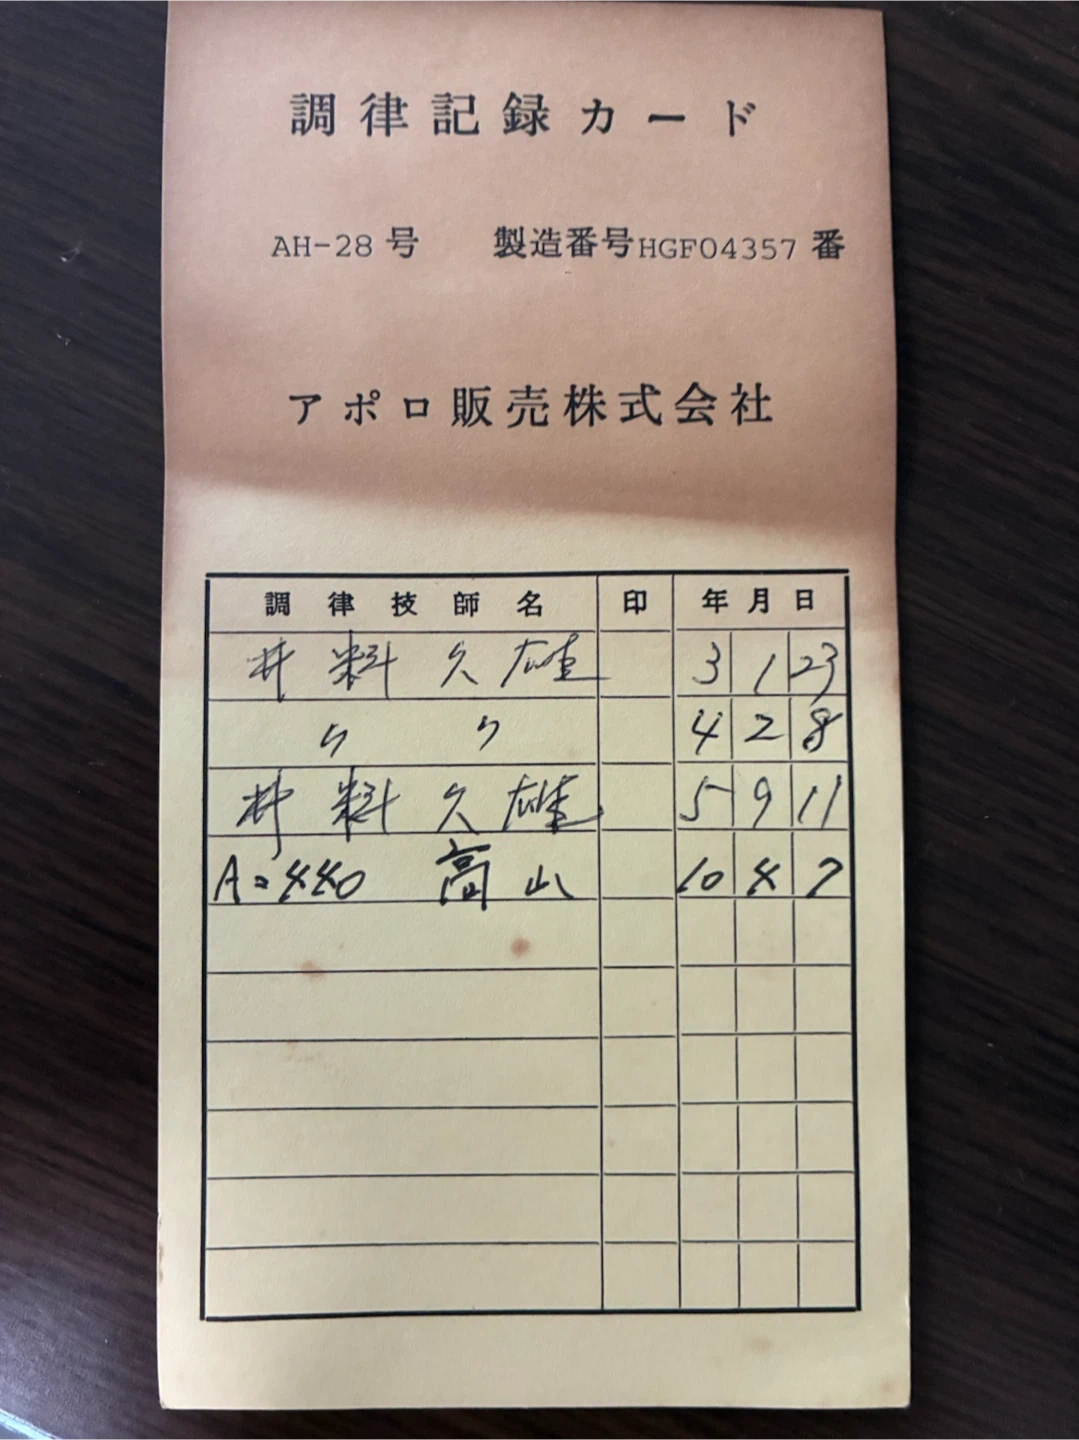 調律記録カード
AH-28号 製造番号HGF04357番
アポロ販売株式会社
調律技師名 印 年月日
井料久雄 3 1 23
〃 〃 4 2 8
井料久雄 5 9 11
A=440 高山 10 4 7